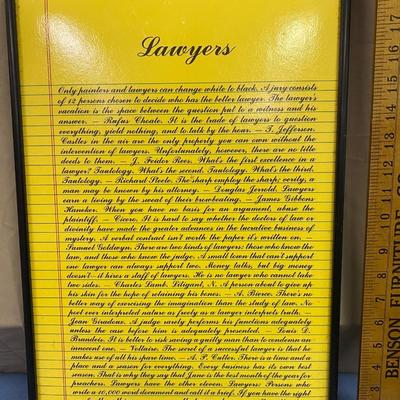 Lawyers
Only painters and lawyers can change white to black. A jury consists
of 12 persons chosen to decide who has the better lawyer. The lawyer's
vacation is the space between the question put to a witness and his
answer. — Rufus Choate. It is the trade of lawyers to question
everything, yield nothing, and to talk by the hour. — T. Jefferson.
Castles in the air are the only property you can own without the
intervention of lawyers. Unfortunately, however, there are no title
deeds to them. — J. Feidor Rees. What's the first excellence in a
lawyer? Tautology. What's the second. Tautology. What's the third.
Tautology. — Richard Steele. The sharp employ the sharp; verily, a
man may be known by his attorney. — Douglas Jerrold. Lawyers
earn a living by the sweat of their browbeating. — James Gibbons
Huneker. When you have no basis for an argument, abuse the
plaintiff. — Cicero. It is hard to say whether the doctors of law or
divinity have made the greater advances in the lucrative business of
mystery. A verbal contract isn't worth the paper it's written on. —
Samuel Goldwyn. There are two kinds of lawyers: those who know the
law, and those who know the judge. A small town that can't support
one lawyer can always support two. Money talks, but big money
doesn't—it hires a staff of lawyers. He is no lawyer who cannot take
two sides. — Charles Lamb. Litigant, N. A person about to give up
his skin for the hope of retaining his bones. — A. Bierce. There's no
better way of exercising the imagination than the study of law. No
poet ever interpreted nature as freely as a lawyer interprets truth. —
Jean Giradoux. A judge rarely performs his functions adequately
unless the case before him is adequately presented. — Louis D.
Brandeis. It is better to risk saving a guilty man than to condemn an
innocent one. — Voltaire. The secret of a successful lawyer is that he
makes use of all his spare time. — A. P. Culler. There is a time and a
place and a season for everything. Every business has its own best
season. That is why they say that June is the best month of the year for
preachers. Lawyers have the other eleven. Lawyers: Persons who
write a 10,000 word document and call it a brief. If you have the right
17
16
15
14
13
12
11
10
9
8
BENSON